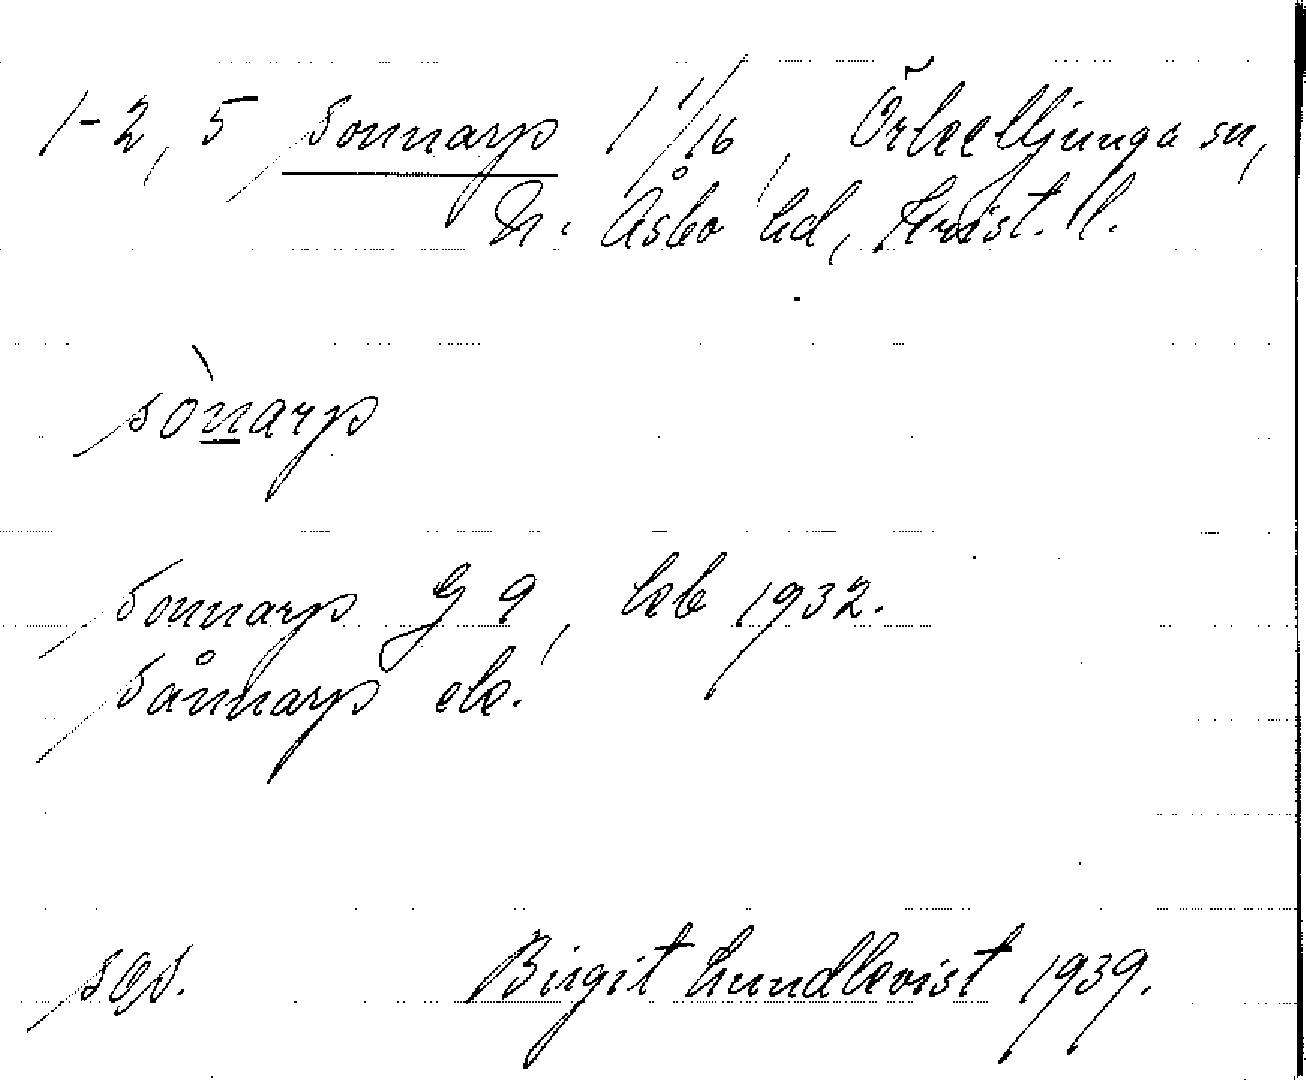 1-2, 5 Sonnarp 1 1/16, Örkelljunga sn,
N. Åsbo hd, Krist. l.
sònarp
Sonnarp G 9, kb 1932.
Sånnarp ek.
sgs. Birgit Lundkvist 1939.